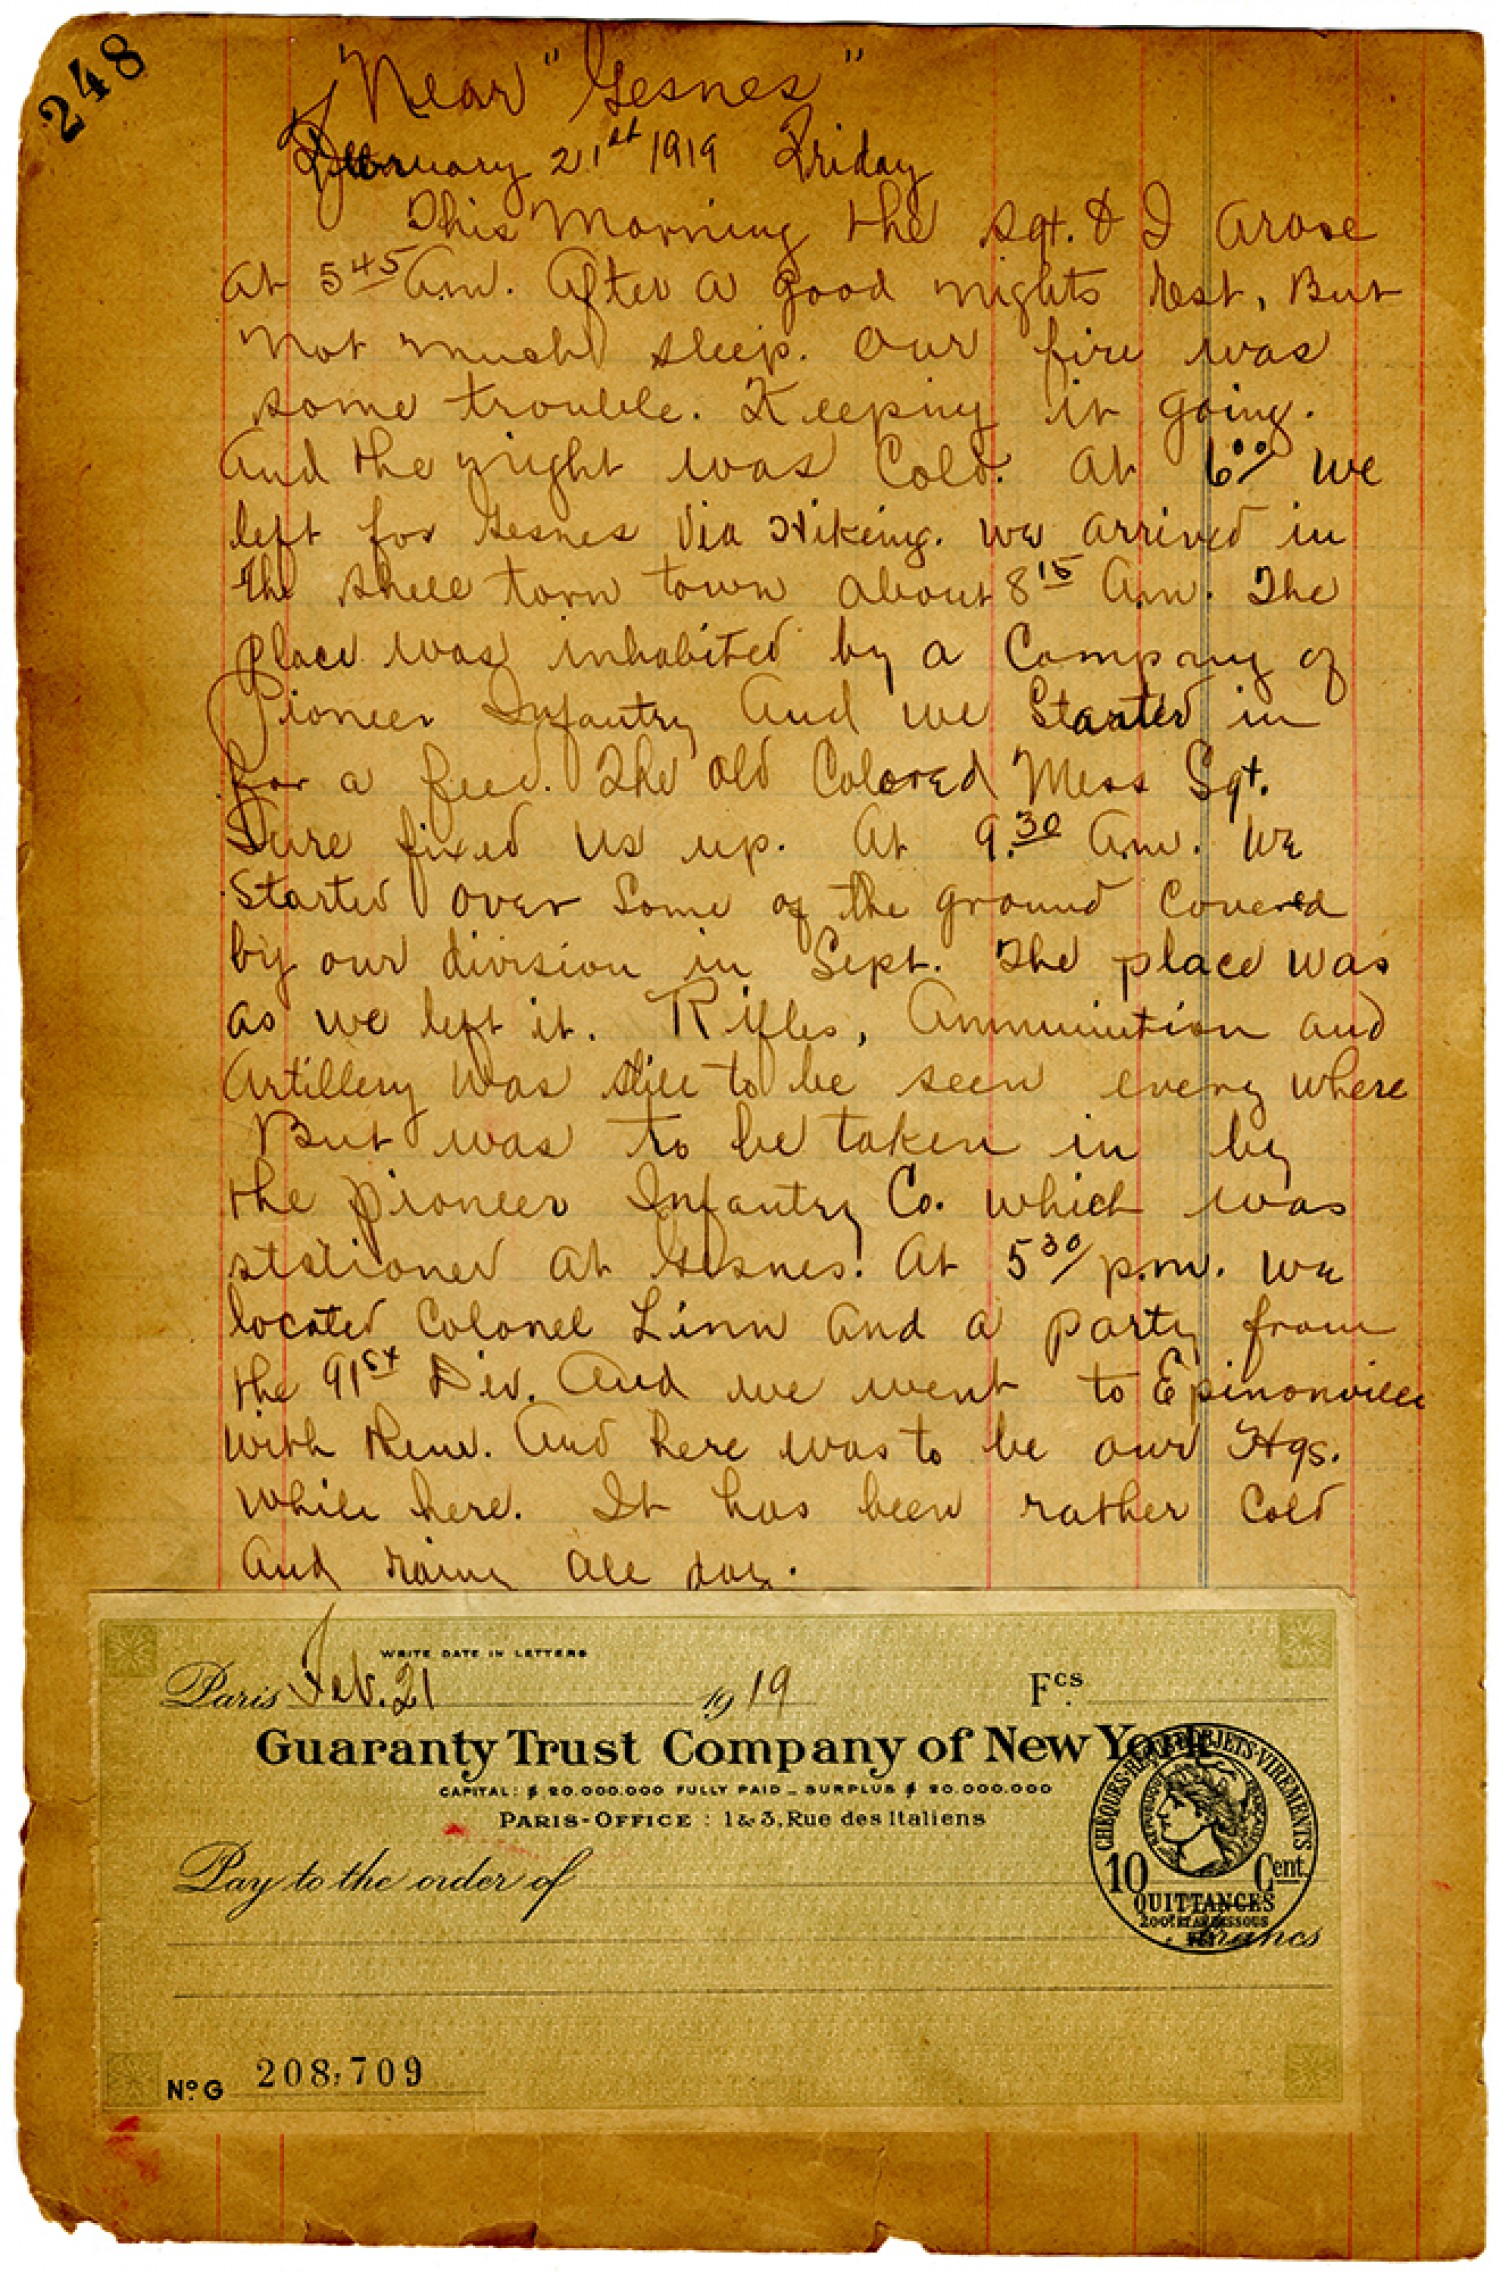 248
Near "Gesnes"
February 21st 1919 Friday
This Morning the Sgt. & I arose
at 5 45 a.m. After a good nights rest, But
not much sleep. Our fire was
some trouble. Keeping it going.
And the night was Cold. At 6 00 we
left for Gesnes Via Hiking. We arrived in
the shell torn town about 8 15 a.m. The
place was inhabited by a Company of
Pioneer Infantry And we Started in
for a feed. The old Colored Mess Sgt.
Sure fixed us up. At 9.30 a.m. we
Started over Some of the ground covered
by our division in Sept. The place was
as we left it. Rifles, Ammunition and
Artillery was still to be seen every where
But was to be taken in by
the Pioneer Infantry Co. which was
ststioned at Gesnes. At 5 30 p.m. we
located Colonel Linn and a party from
the 91st Div. And we went to Epinonville
with them. And here was to be our Hqs.
while here. It has been rather Cold
And rainy all day.
WRITE DATE IN LETTERS
Paris Feb. 21 1919 Fcs.
Guaranty Trust Company of New York
CAPITAL: $ 20.000.000 FULLY PAID _ SURPLUS $ 20.000.000
PARIS-OFFICE : 1 & 3, Rue des Italiens
Pay to the order of
CHÈQUES VIREMENTS
10 Cent.
QUITTANCES
Francs
No. G 208.709